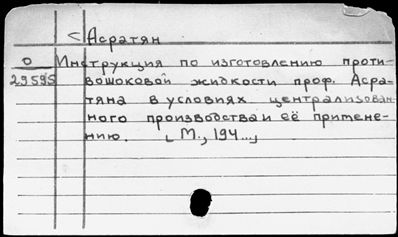 < Асратян
О Инструкция по изготовлению проти-
29595 вошоковой жидкости проф. Асра-
тяна в условиях централизован
ного производства и её примене-
нию. [М., 194...]